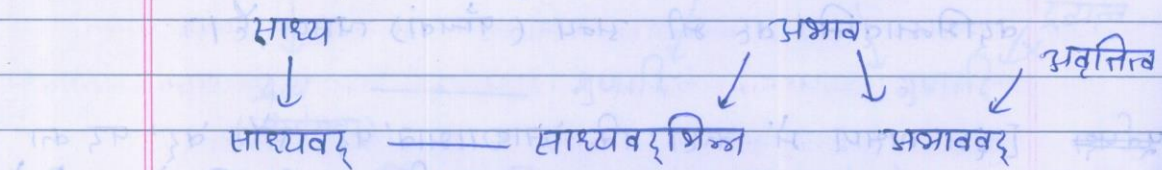 साध्य अभाव
अवृत्तित्व
साध्यवद् साध्यवद्भिन्न अभाववद्